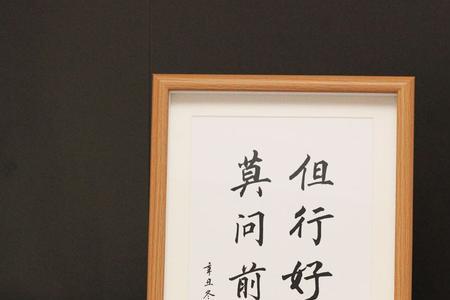 但行好
莫问前
辛丑冬